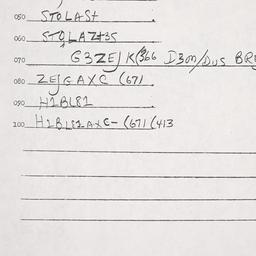 050 STOLASt
060 STOLAZt35
070 G3ZEJK(366 D3m/Dus BRE
080 ZEJGAXC (671
090 H1BL81
100 H1BL81AXC- (671 (413